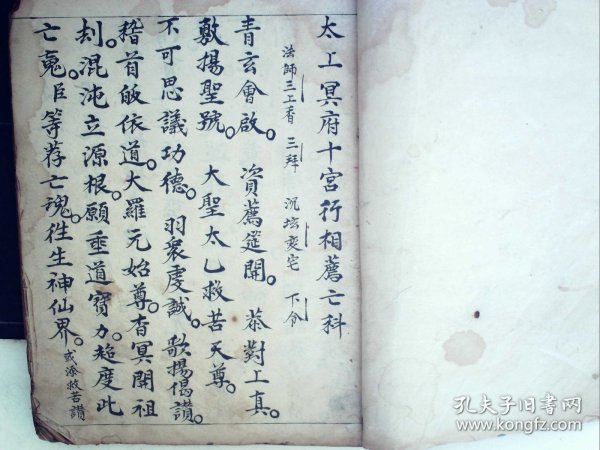 太上冥府十宮行相薦亡科
法師三上香 三拜 沉坛变宅 下介
青玄會啟。 資薦筵開。 恭對上真。
敷揚聖號。 大聖太乙救苦天尊。
不可思議功德。羽衆虔誠。歌揚偈讚。
稽首皈依道。大羅元始尊。杳冥開祖
刦。混沌立源根。願垂道寳力。超度此
亡魂。臣等荐亡魂。往生神仙界。或添救苦讃
孔夫子旧书网
www.kongfz.com